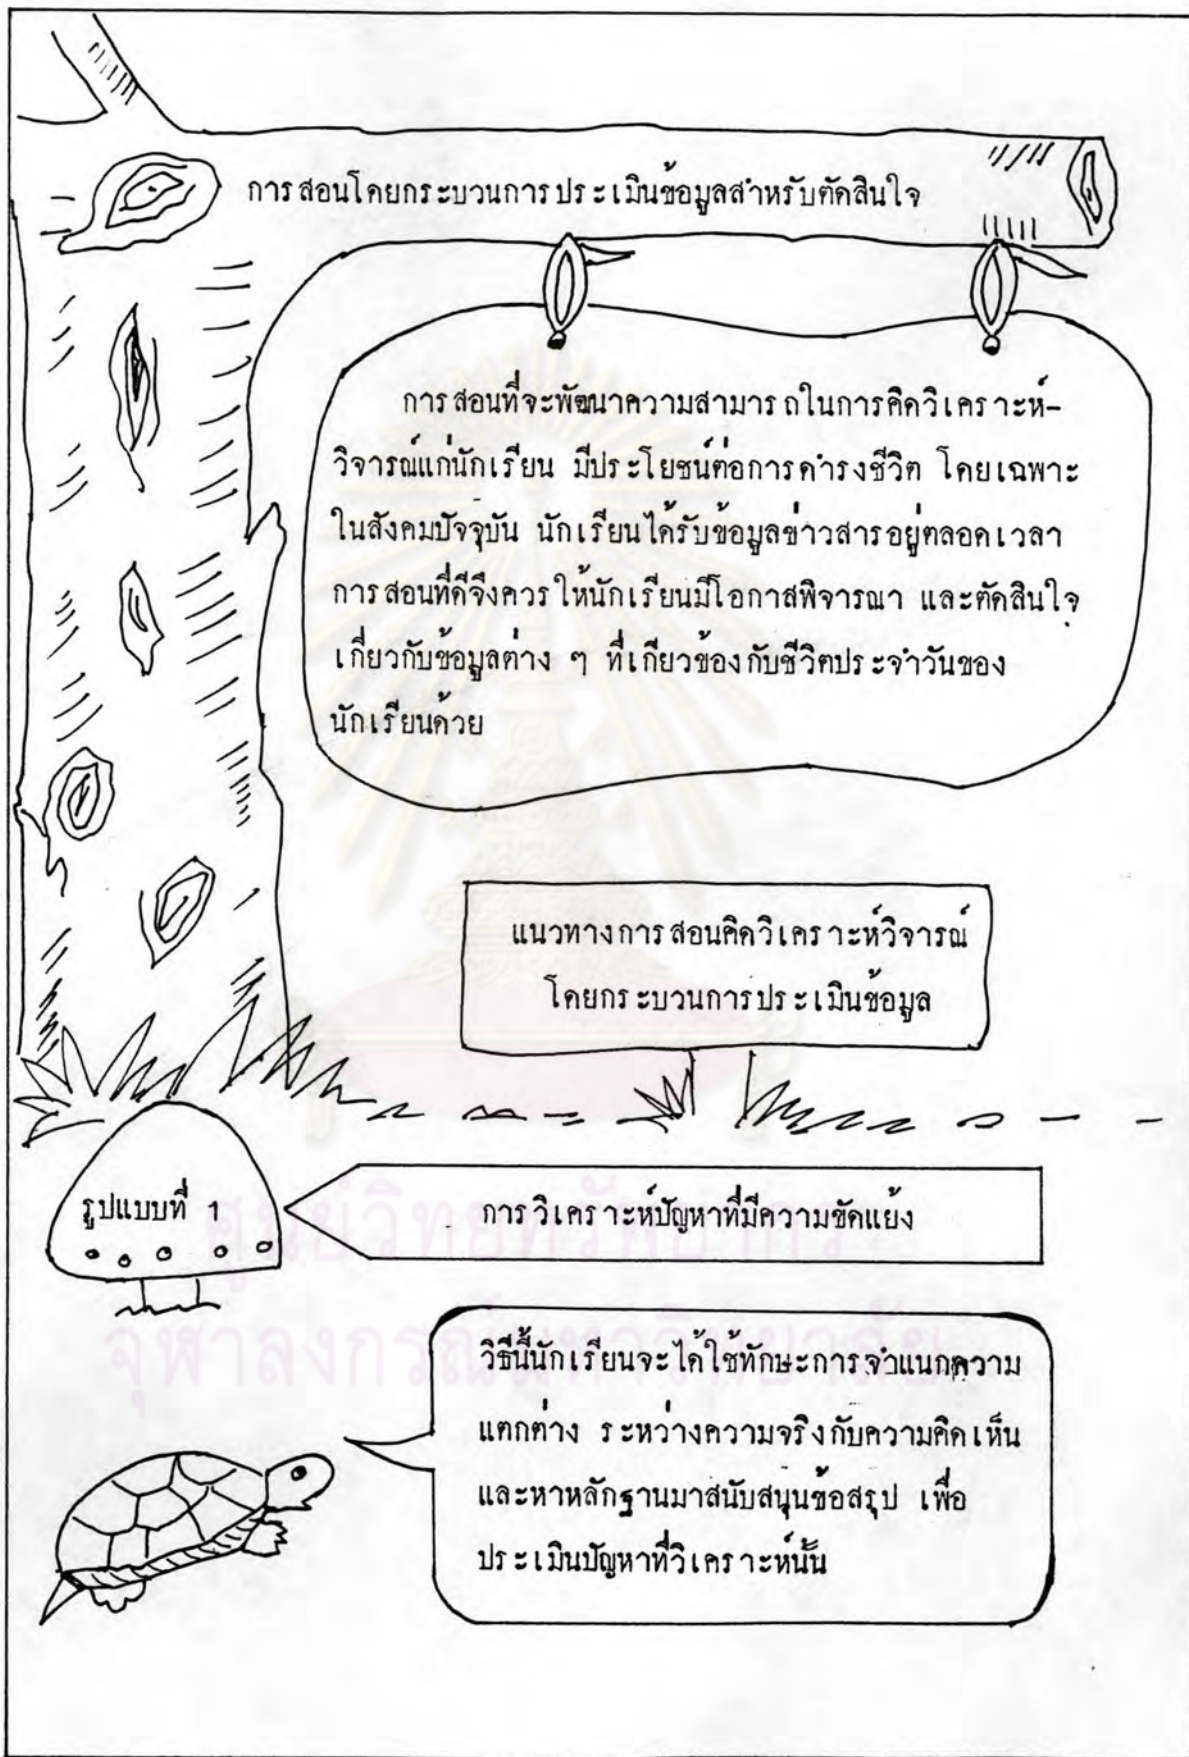 การสอนโดยกระบวนการประเมินข้อมูลสำหรับตัดสินใจ
การสอนที่จะพัฒนาความสามารถในการคิดวิเคราะห์-
วิจารณ์แก่นักเรียน มีประโยชน์ต่อการดำรงชีวิต โดยเฉพาะ
ในสังคมปัจจุบัน นักเรียนได้รับข้อมูลข่าวสารอยู่ตลอดเวลา
การสอนที่ดีจึงควรให้นักเรียนมีโอกาสพิจารณา และตัดสินใจ
เกี่ยวกับข้อมูลต่าง ๆ ที่เกี่ยวข้องกับชีวิตประจำวันของ
นักเรียนด้วย
แนวทางการสอนคิดวิเคราะห์วิจารณ์
โดยกระบวนการประเมินข้อมูล
รูปแบบที่ 1
การวิเคราะห์ปัญหาที่มีความขัดแย้ง
ศูนย์วิทยทรัพยากร
จุฬาลงกรณ์มหาวิทยาลัย
วิธีนี้นักเรียนจะได้ใช้ทักษะการจำแนกความ
แตกต่าง ระหว่างความจริงกับความคิดเห็น
และหาหลักฐานมาสนับสนุนข้อสรุป เพื่อ
ประเมินปัญหาที่วิเคราะห์นั้น